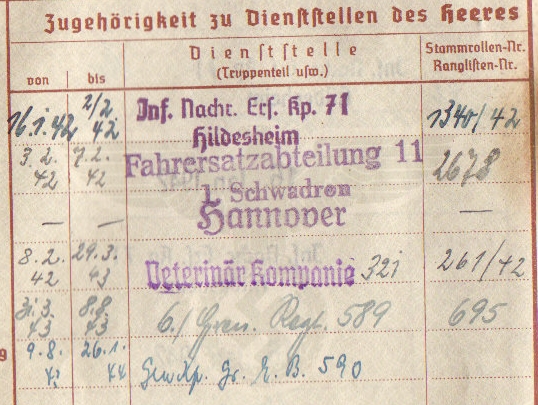 Zugehörigkeit zu Dienststellen des Heeres
von bis Dienststelle (Truppenteil usw.) Stammrollen-Nr. Ranglisten-Nr.
16.1.42 2/2 42 Inf. Nachr. Ers. Kp. 71 1340/42
Hildesheim
3.2. 42 7.2. 42 Fahrersatzabteilung 11 2678
1. Schwadron
— — Hannover —
8.2. 42 29.3. 43 Veterinär Kompanie 321 261/42
43 8.8. 43 6./Gren. Regt. 589 695
9 9.8. 43 26.1. 44 Gr. R. 590